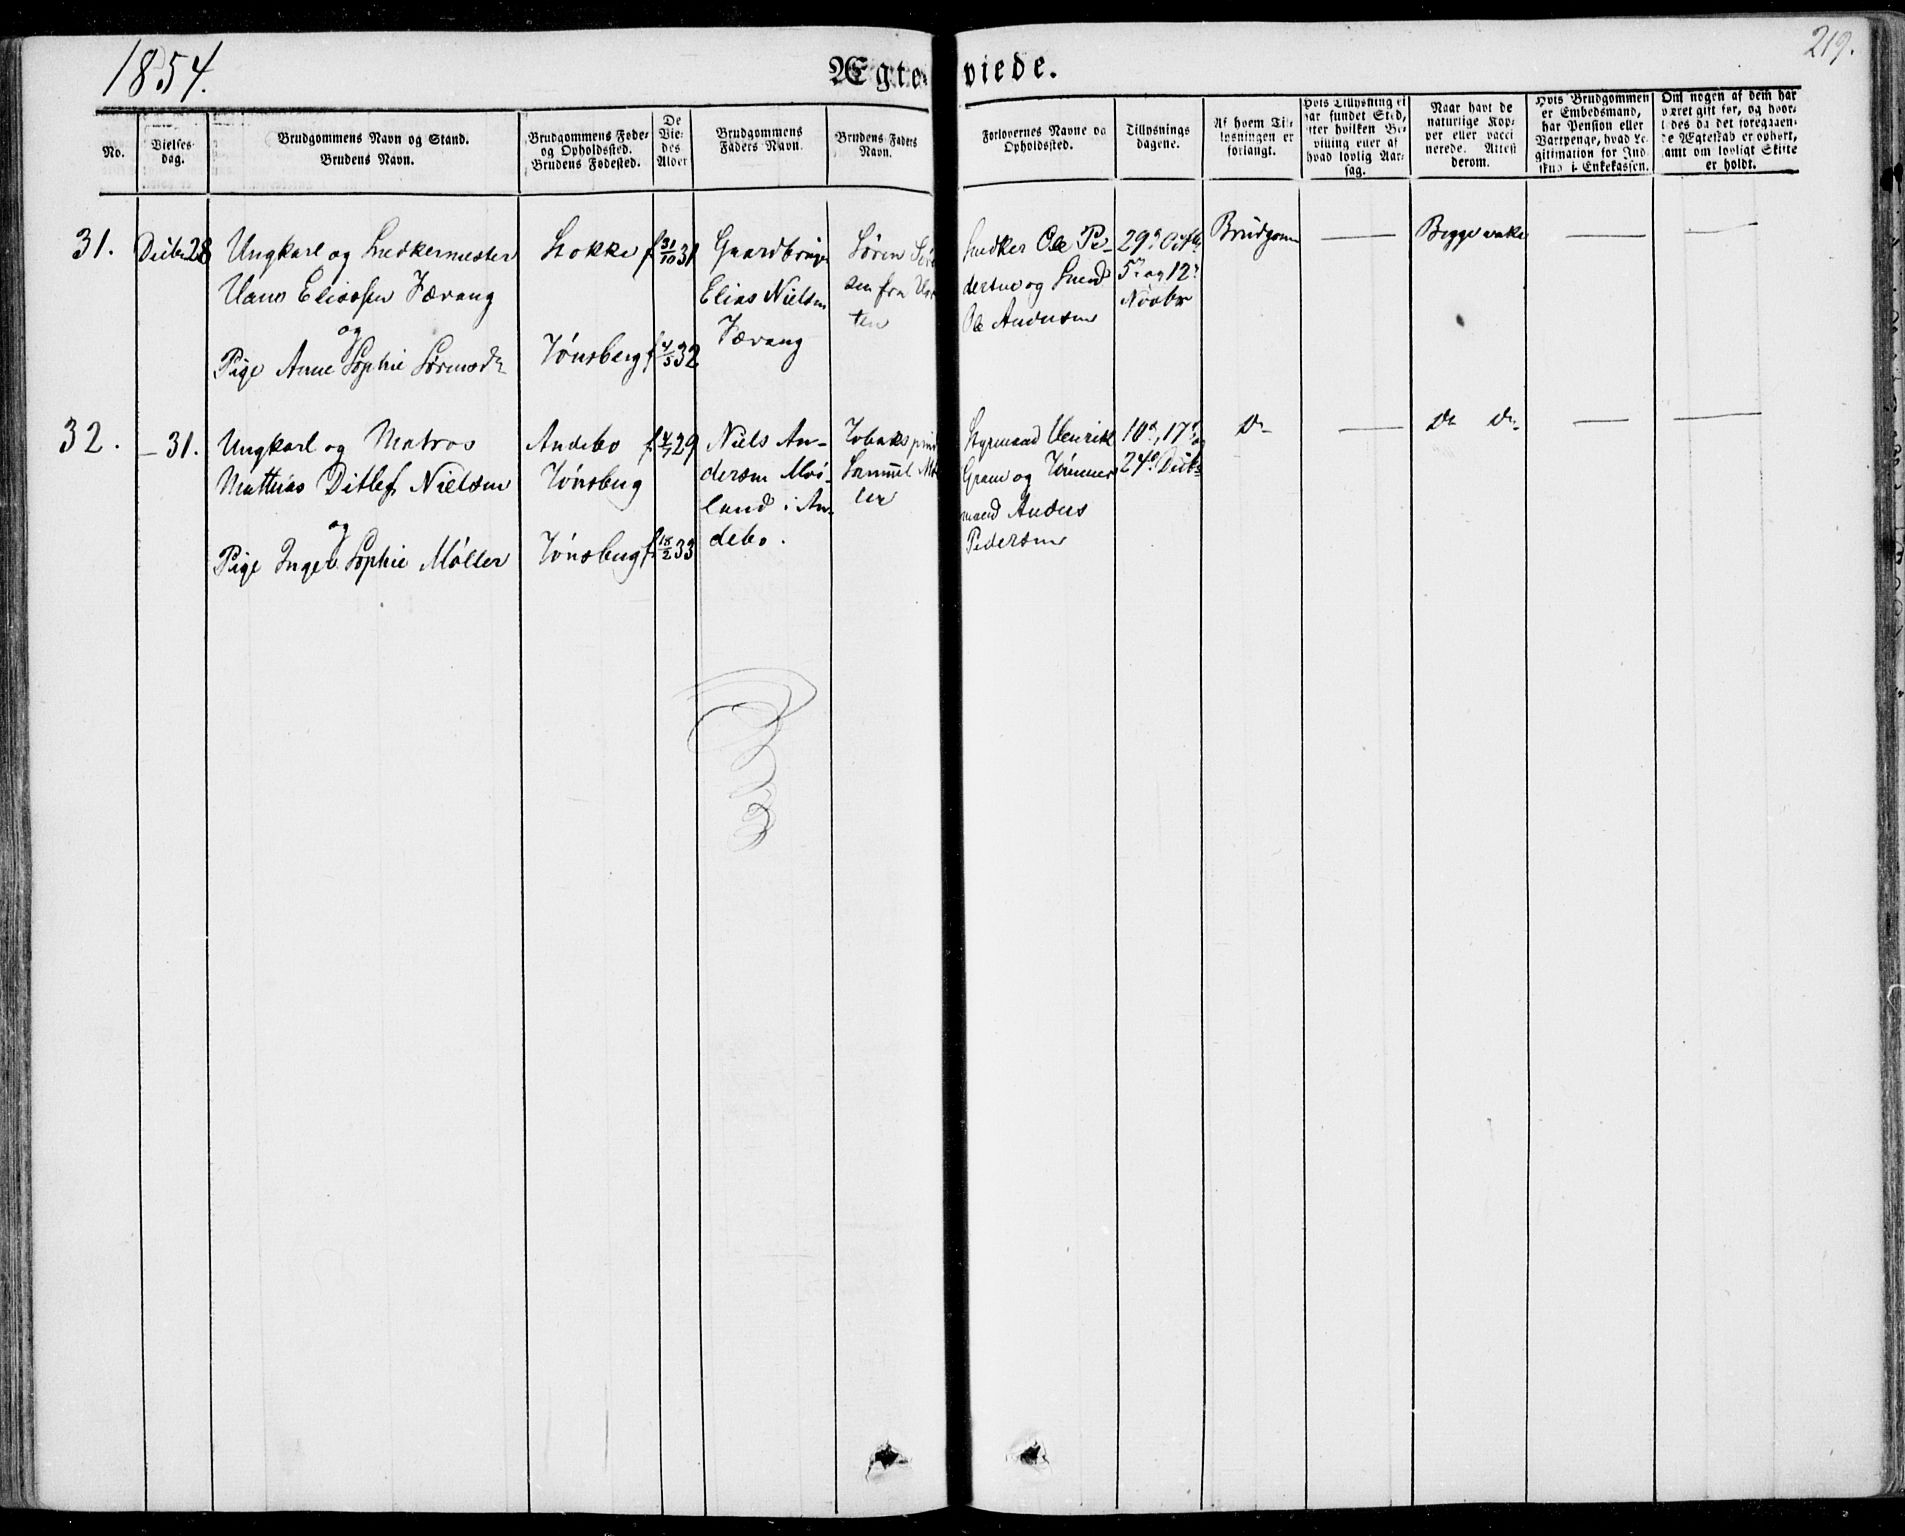 1854.
219.
Ægteviede.
No.
Vielses-
dag.
Brudgommens Navn og Stand.
Brudens Navn.
Brudgommens Føde-
og Opholdssted.
Brudens Fødested.
De
Vie-
des
Alder
Brudgommens
Faders Navn.
Brudens Faders
Navn.
Forlovernes Navne og
Opholdssted.
Tillysnings
dagene.
Af hvem Til-
lysningen er
forlangt.
Hvis Tillysning ei
har fundet Sted,
efter hvilken Be-
villing eller af
hvad lovlig Aar-
sag.
Naar havt de
naturlige Kop-
per eller vacci
nerede. Attest
derom.
Hvis Brudgommen
er Embedsmand,
har Pension eller
Vartpenge, hvad Le-
gitimation for Ind-
skud i Enkekassen.
Om nogen af dem har
været gift før, og hvor-
ledes da det foregaaen-
de Ægteskab er ophørt,
samt om lovligt Skifte
er holdt.
31.
Decbr 28
Ungkarl og Snedkermester
Hans Eliassen Færang
og
Pige Anne Sophie Sørensdr
Stokke
Tønsberg
f 31/10 31
f 4/5 32
Gaardbruger
Elias Nielsen
Færang
Søren
sen fra
ten
Snedker Ole Pe-
dersen og Smed
Ole Andersen
29de Octbr
5te og 12te
Novbr
Brudgom
—
Begge vakc
—
—
32.
— 31.
Ungkarl og Matros
Matthias Ditlef Nielsen
og
Pige Inger Sophie Møller
Andebo
Tønsberg
Tønsberg
f 29
f 18/2 33
Niels An-
dersen Møi-
land i An-
debo.
Tobaks
Samuel Mø
ler
Styrmand Henrik
Gram og Tømmer
mand Anders
Pedersen
10de, 17de og
24de Decbr
Do
—
Do Do
—
—